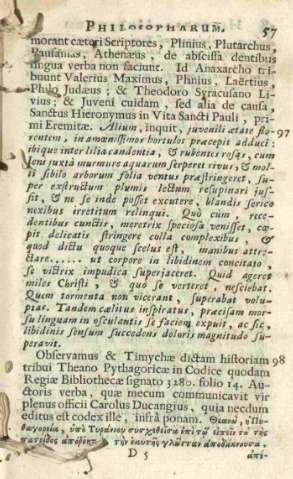 PHILOSOPHARUM. 57
morant cæteri Scriptores, Plinius, Plutarchus,
Pausanias, Athenæus, de abscissa dentibus
lingua verba non faciunt. Id Anaxarcho tri-
buunt Valerius Maximus, Plinius, Laërtius,
Philo Judæus; & Theodoro Syracusano Li-
vius; & Juveni cuidam, sed alia de causa,
Sanctus Hieronymus in Vita Sancti Pauli, pri-
mi Eremitæ. Alium, inquit, juvenili ætate flo- 97
rentem, in amœnissimos hortulos præcepit adduci:
ibique inter lilia candentia, & rubentes rosas, cum
leni juxta murmure aquarum serperet rivus, & mol-
li sibilo arborum folia ventus præstringeret, su-
per exstructum plumis lectum resupinari jus-
sit, & ne se inde posset excutere, blandis serico
nexibus irretitum relinqui. Quo cùm, rece-
dentibus cunctis, meretrix speciosa venisset, cœ-
pit delicatis stringere colla complexibus &
quod dictu quoque scelus est, manibus attre-
ctare...... ut corpore in libidinem concitato,
se victrix impudica superjaceret. Quid ageret
miles Christi, & quo se verteret, nesciebat.
Quem tormenta non vicerant, superabat volu-
ptas. Tandem cælitus inspiratus, præcisam mor-
su linguam in osculantis se faciem expuit, ac sic,
libidinis sensum succedens doloris magnitudo su-
peravit.
Observamus & Timychæ dictam historiam 98
tribui Theano Pythagoricæ in Codice quodam
Regiæ Bibliothecæ signato 3280. folio 14. Au-
ctoris verba, quæ mecum communicavit vir
plenus officii Carolus Ducangius, quia necdum
editus est codex ille, infra ponam. Θεανὼ, ἡ Πυ-
θαγορεία, ὑπὸ Τυράννου συσχεθεῖσα ἐπὶ τῷ εἰπεῖν τὰ τῆς
πατρίδος ἀπόῤῥητα, τὴν ἑαυτῆς γλῶτταν ἀποδάκουσα,
D 5 ἀπέ-